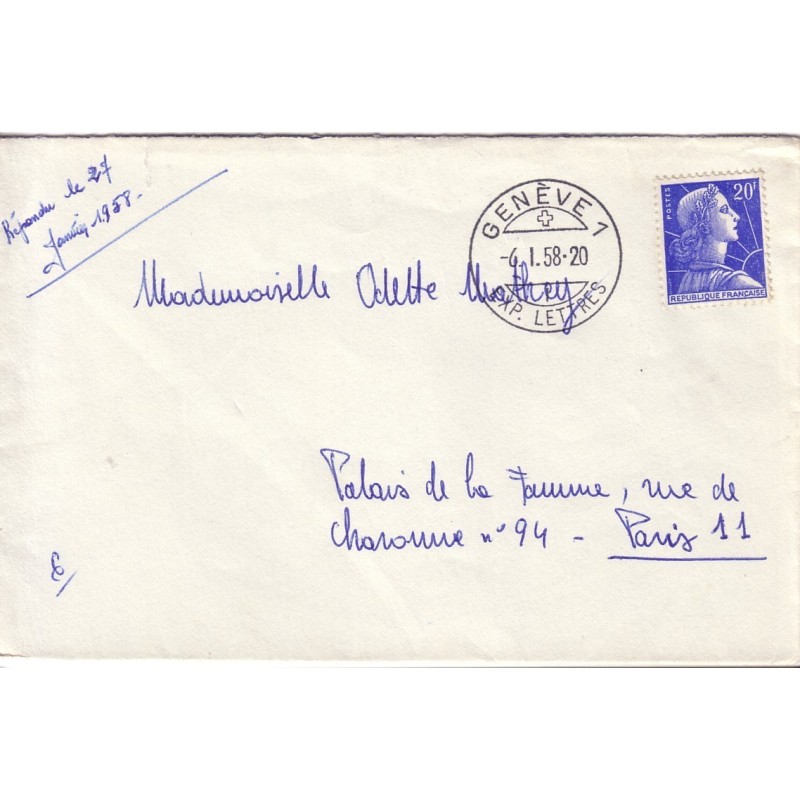 Répondu le 27
Janvier 1958.
GENÈVE 1
-4.I.58-20
EXP. LETTRES
POSTES
20F
REPUBLIQUE FRANÇAISE
Mademoiselle Odette Mathey
Palais de la Femme, rue de
Charonne n° 94 - Paris 11